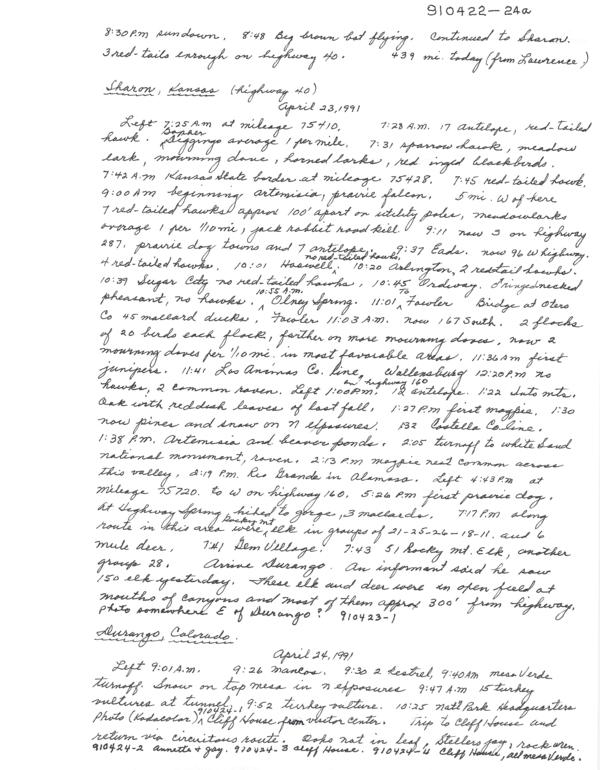 910422-24a
8:30 P.m sundown. 8:48 Big brown bat flying. Continued to Sharon.
3 red-tails enrough on highway 40. 439 mi. today (from Lawrence)
Sharon, Kansas (highway 40)
April 23, 1991
Left 7:25 A.m at mileage 75410. 7:28 A.m. 17 antelope, red-tailed
hawk. Gopher diggings average 1 per mile. 7:31 sparrow hawk, meadow
lark, mourning dove, horned larks, red inged blackbirds.
7:42 A.m Kansas State border at mileage 75428. 7:45 red-tailed hawk.
9:00 A.m beginning artemisia, prairie falcon. 5 mi. W of here
7 red-tailed hawks approx 100' apart on utility poles, meadowlarks
average 1 per 1/10 mi, jack rabbit road kill 9:11 now 3 on highway
287. prairie dog towns and 7 antelope. 9:37 Eads. now 96 W highway.
4 red-tailed hawks. 10:01 Haswell, no red-tailed hawks, 10:20 Arlington, 2 redtail hawks.
10:39 Sugar City no red-tailed hawks, 10:45 Ordway. Fringednecked
pheasant, no hawks. 10:55 A.m. Olney Spring. 11:01 To Fowler Bridge at Otero
Co 45 mallard ducks. Fowler 11:03 A.m. now 167 South. 2 flocks
of 20 birds each flock, farther on more mourning doves, now 2
mourning doves per 1/10 mi. in most favorable areas. 11:36 am first
junipers. 11:41 Las Animas Co. line, Wallensburg 12:20 P.m no
hawks, 2 common raven. Left 1:00 P.m. on highway 160 12 antelope. 1:22 Into mts.
Oak with reddish leaves of last fall. 1:27 P.m first magpie. 1:30
now pines and snow on N exposures. 132 Costella Co. line.
1:38 P.m. Artemisia and beaver ponds. 2:05 turnoff to white Sand
national monument, raven. 2:13 P.m magpie nest common across
this valley. 2:19 P.m. Rio Grande in Alamosa. Left 4:43 P.m at
mileage 75720. to W on highway 160. 5:26 P.m first prairie dog.
At Highway Spring, hiked to gorge, 3 mallards. 7:17 P.m along
route in this area were, Rocky mt elk in groups of 21-25-26-18-11. and 6
mule deer. 7:41 Gem Village. 7:43 51 Rocky Mt. Elk, another
group 28. Arrive Durango. An informant said he saw
150 elk yesterday. These elk and deer were in open field at
mouths of canyons and most of them approx 300' from highway.
Photo somewhere E of Durango? 910423-1
Durango, Colorado.
April 24, 1991
Left 9:01 A.m. 9:26 mancos. 9:30 2 kestrel, 9:40 Am mesa Verde
turnoff. Snow on top mesa in N exposures 9:47 A.m 15 turkey
vultures at tunnel, 9:52 turkey vulture. 10:25 Natl Park Headquarters
Photo (Kodacolor) 910424-1 Cliff House from visitor center. Trip to Cliff House and
return via circuitous route. Oaks not in leaf, Stellers jay, rock wren.
910424-2 Annetta & gay. 910424-3 Cliff House. 910424-4 Cliff House, all mesa Verde.